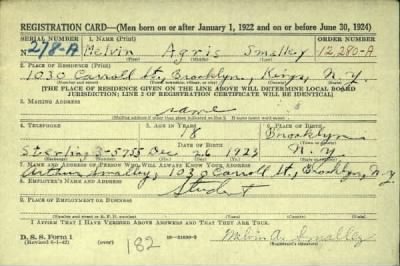 REGISTRATION CARD—(Men born on or after January 1, 1922 and on or before June 30, 1924)
SERIAL NUMBER 1. NAME (Print) ORDER NUMBER
278-A Melvin Agris Smalley 12,280-A
2. PLACE OF RESIDENCE (Print)
1030 Carroll St., Brooklyn, Kings, N.Y.
[THE PLACE OF RESIDENCE GIVEN ON THE LINE ABOVE WILL DETERMINE LOCAL BOARD
JURISDICTION; LINE 2 OF REGISTRATION CERTIFICATE WILL BE IDENTICAL]
3. MAILING ADDRESS
same
4. TELEPHONE 5. AGE IN YEARS 6. PLACE OF BIRTH
18 Brooklyn
DATE OF BIRTH
Sterling 3-5755 Dec 26 1923 N.Y.
7. NAME AND ADDRESS OF PERSON WHO WILL ALWAYS KNOW YOUR ADDRESS
Arthur Smalley, 1030 Carroll St., Brooklyn, N.Y.
8. EMPLOYER'S NAME AND ADDRESS
Student
9. PLACE OF EMPLOYMENT OR BUSINESS
I AFFIRM THAT I HAVE VERIFIED ABOVE ANSWERS AND THAT THEY ARE TRUE.
D. S. S. Form 1
(Revised 6-1-42) (over) 182 Melvin A. Smalley